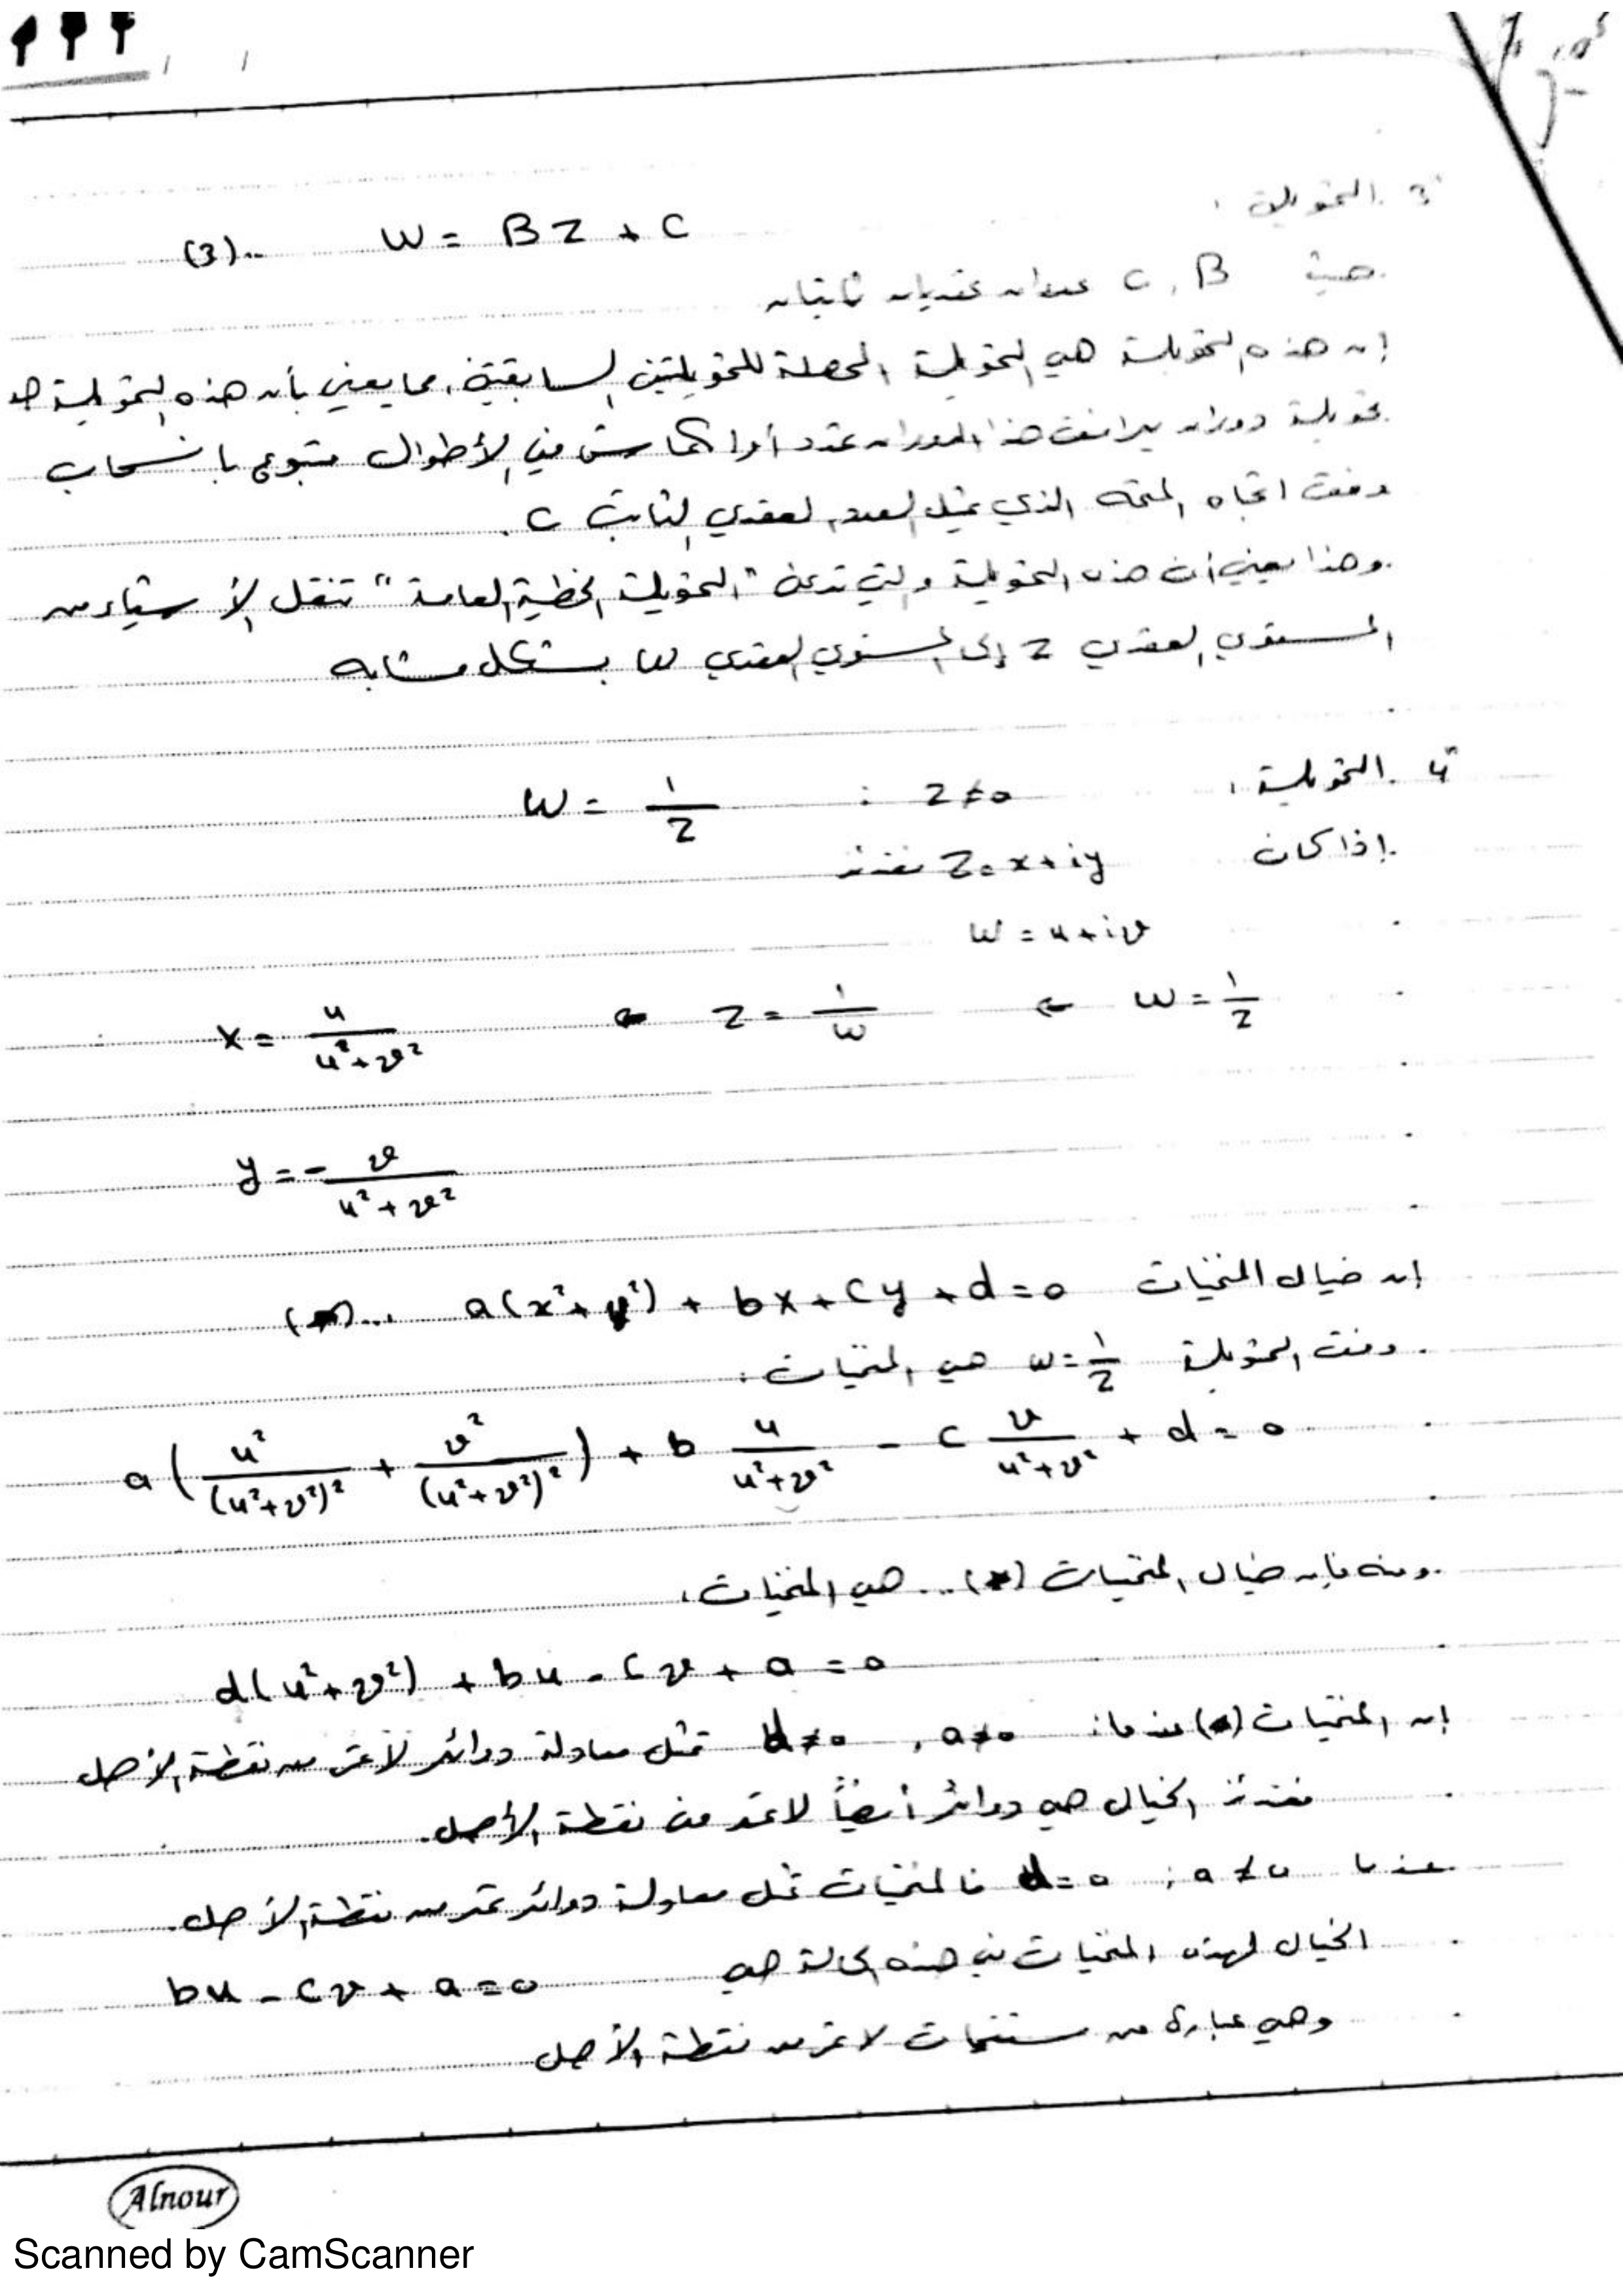 3 . التحويلة :
W = Bz + C ...(3)
حيث C , B عددان عقديان ثابتان
إن هذه التحويلة هي التحويلة المحصلة للتحويلتين السابقتين، مما يعني بأن هذه التحويلة هي
تحويلة دوران يرافق هذا الدوران تمدد أو انكماش في الأطوال متبوع بانسحاب
وفق اتجاه المتجه الذي يمثل العدد العقدي الثابت C .
وهذا يعني أن هذه التحويلة والتي تدعى "التحويلة الخطية العامة" تنقل الأشياء من
المستوي العقدي z إلى المستوي العقدي W بشكل مشابه
4 . التحويلة :
W = 1/z : z ≠ 0
إذا كان z = x + iy عندئذ
W = u + iv
W = 1/z ⇐ z = 1/w ⇐ x = u/(u²+v²)
y = - v/(u²+v²)
إن خيال المنحنيات a(x²+y²) + bx + cy + d = 0 ...(*)
وفق التحويلة w = 1/z هي المنحنيات :
a ( u²/(u²+v²)² + v²/(u²+v²)² ) + b u/(u²+v²) - c v/(u²+v²) + d = 0
ومنه فإن خيال المنحنيات (*).. هي المنحنيات :
d(u²+v²) + bu - cv + a = 0
إن المنحنيات (*) عندما : a≠0 , d≠0 تمثل معادلة دوائر لا تمر من نقطة الأصل
عندئذ الخيال هي دوائر أيضاً لا تمر من نقطة الأصل.
عندما a≠0 ; d=0 فالمنحنيات تمثل معادلة دوائر تمر من نقطة الأصل.
الخيال لهذه المنحنيات في هذه الحالة هي bu - cv + a = 0
وهي عبارة عن مستقيمات لا تمر من نقطة الأصل
Alnour
Scanned by CamScanner